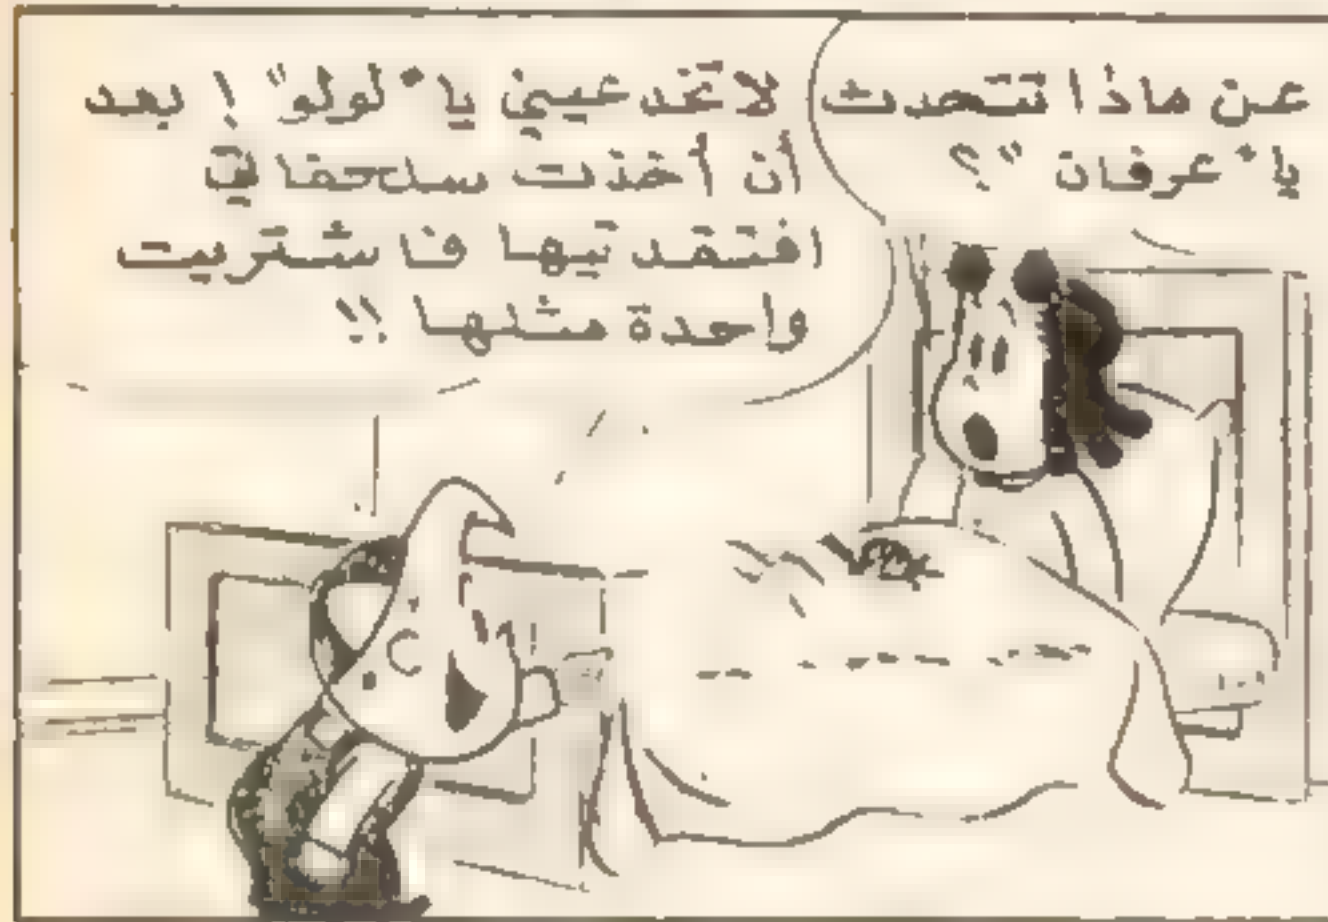 عن ماذا تتحدث
يا "عرفان"؟
لا تخدعيني يا "لولو"! بعد
أن أخذت سلحفاتي
افتقدتيها فاشتريت
واحدة مثلها!!